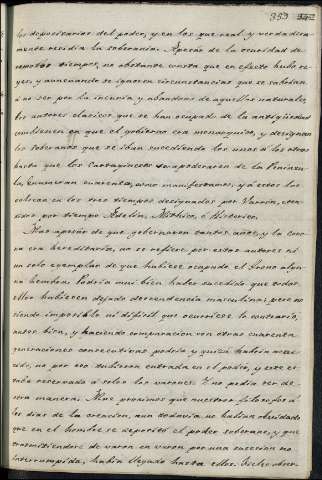 353
los depositarios del poder, y en los que real y verdadera-
mente residia la soberania. Apesár de la ocuridad de
remotos tiempos, no obstante consta que en efecto hubo re-
yes, y aun cuando se ignoren circunstancias que se sabrian
á no ser por la incuria y abandono de aquellos naturales,
los autores clasicos que se han ocupado de la antigüedad
combienen en que el gobierno era monarquico, y designan
los soberanos que se iban sucediendo los unos á los otros
hasta que los Cartagineses se apoderaron de la Penínsu-
la. Enumeran cuarenta, como manifestamos, y á estos los
colocan en los tres tiempos designados por Varrón, cono-
cidos por tiempo Adelón, Míthico, é Historico.
Mas apesár de que gobernaron tantos años, y la coro-
na era hereditaria, no se refiere por estos autores ni
un solo egemplar de que hubiese ocupado el trono algu-
na hembra. Podria mui bien haber sucedido que todos
ellos hubiesen dejado descendencia masculina; pero no
siendo imposible ni dificil que ocurriese lo contrario,
antes bien, y haciendo comparacion con otras cuarenta
generaciones consecutivas podria y quizá habria acae-
cido, no por eso tubieron entrada en el poder, y este es-
taba reservado á solos los varones. Y no podia ser de
otra manera. Mas procsimos que nuestros filosofos á
los dias de la creacion, aun todavia no habian olvidado
que en el hombre se depositó el poder soberano, y que
transmitiendose de varon en varon por una succesion no
interrumpida, habia llegado hasta ellos.